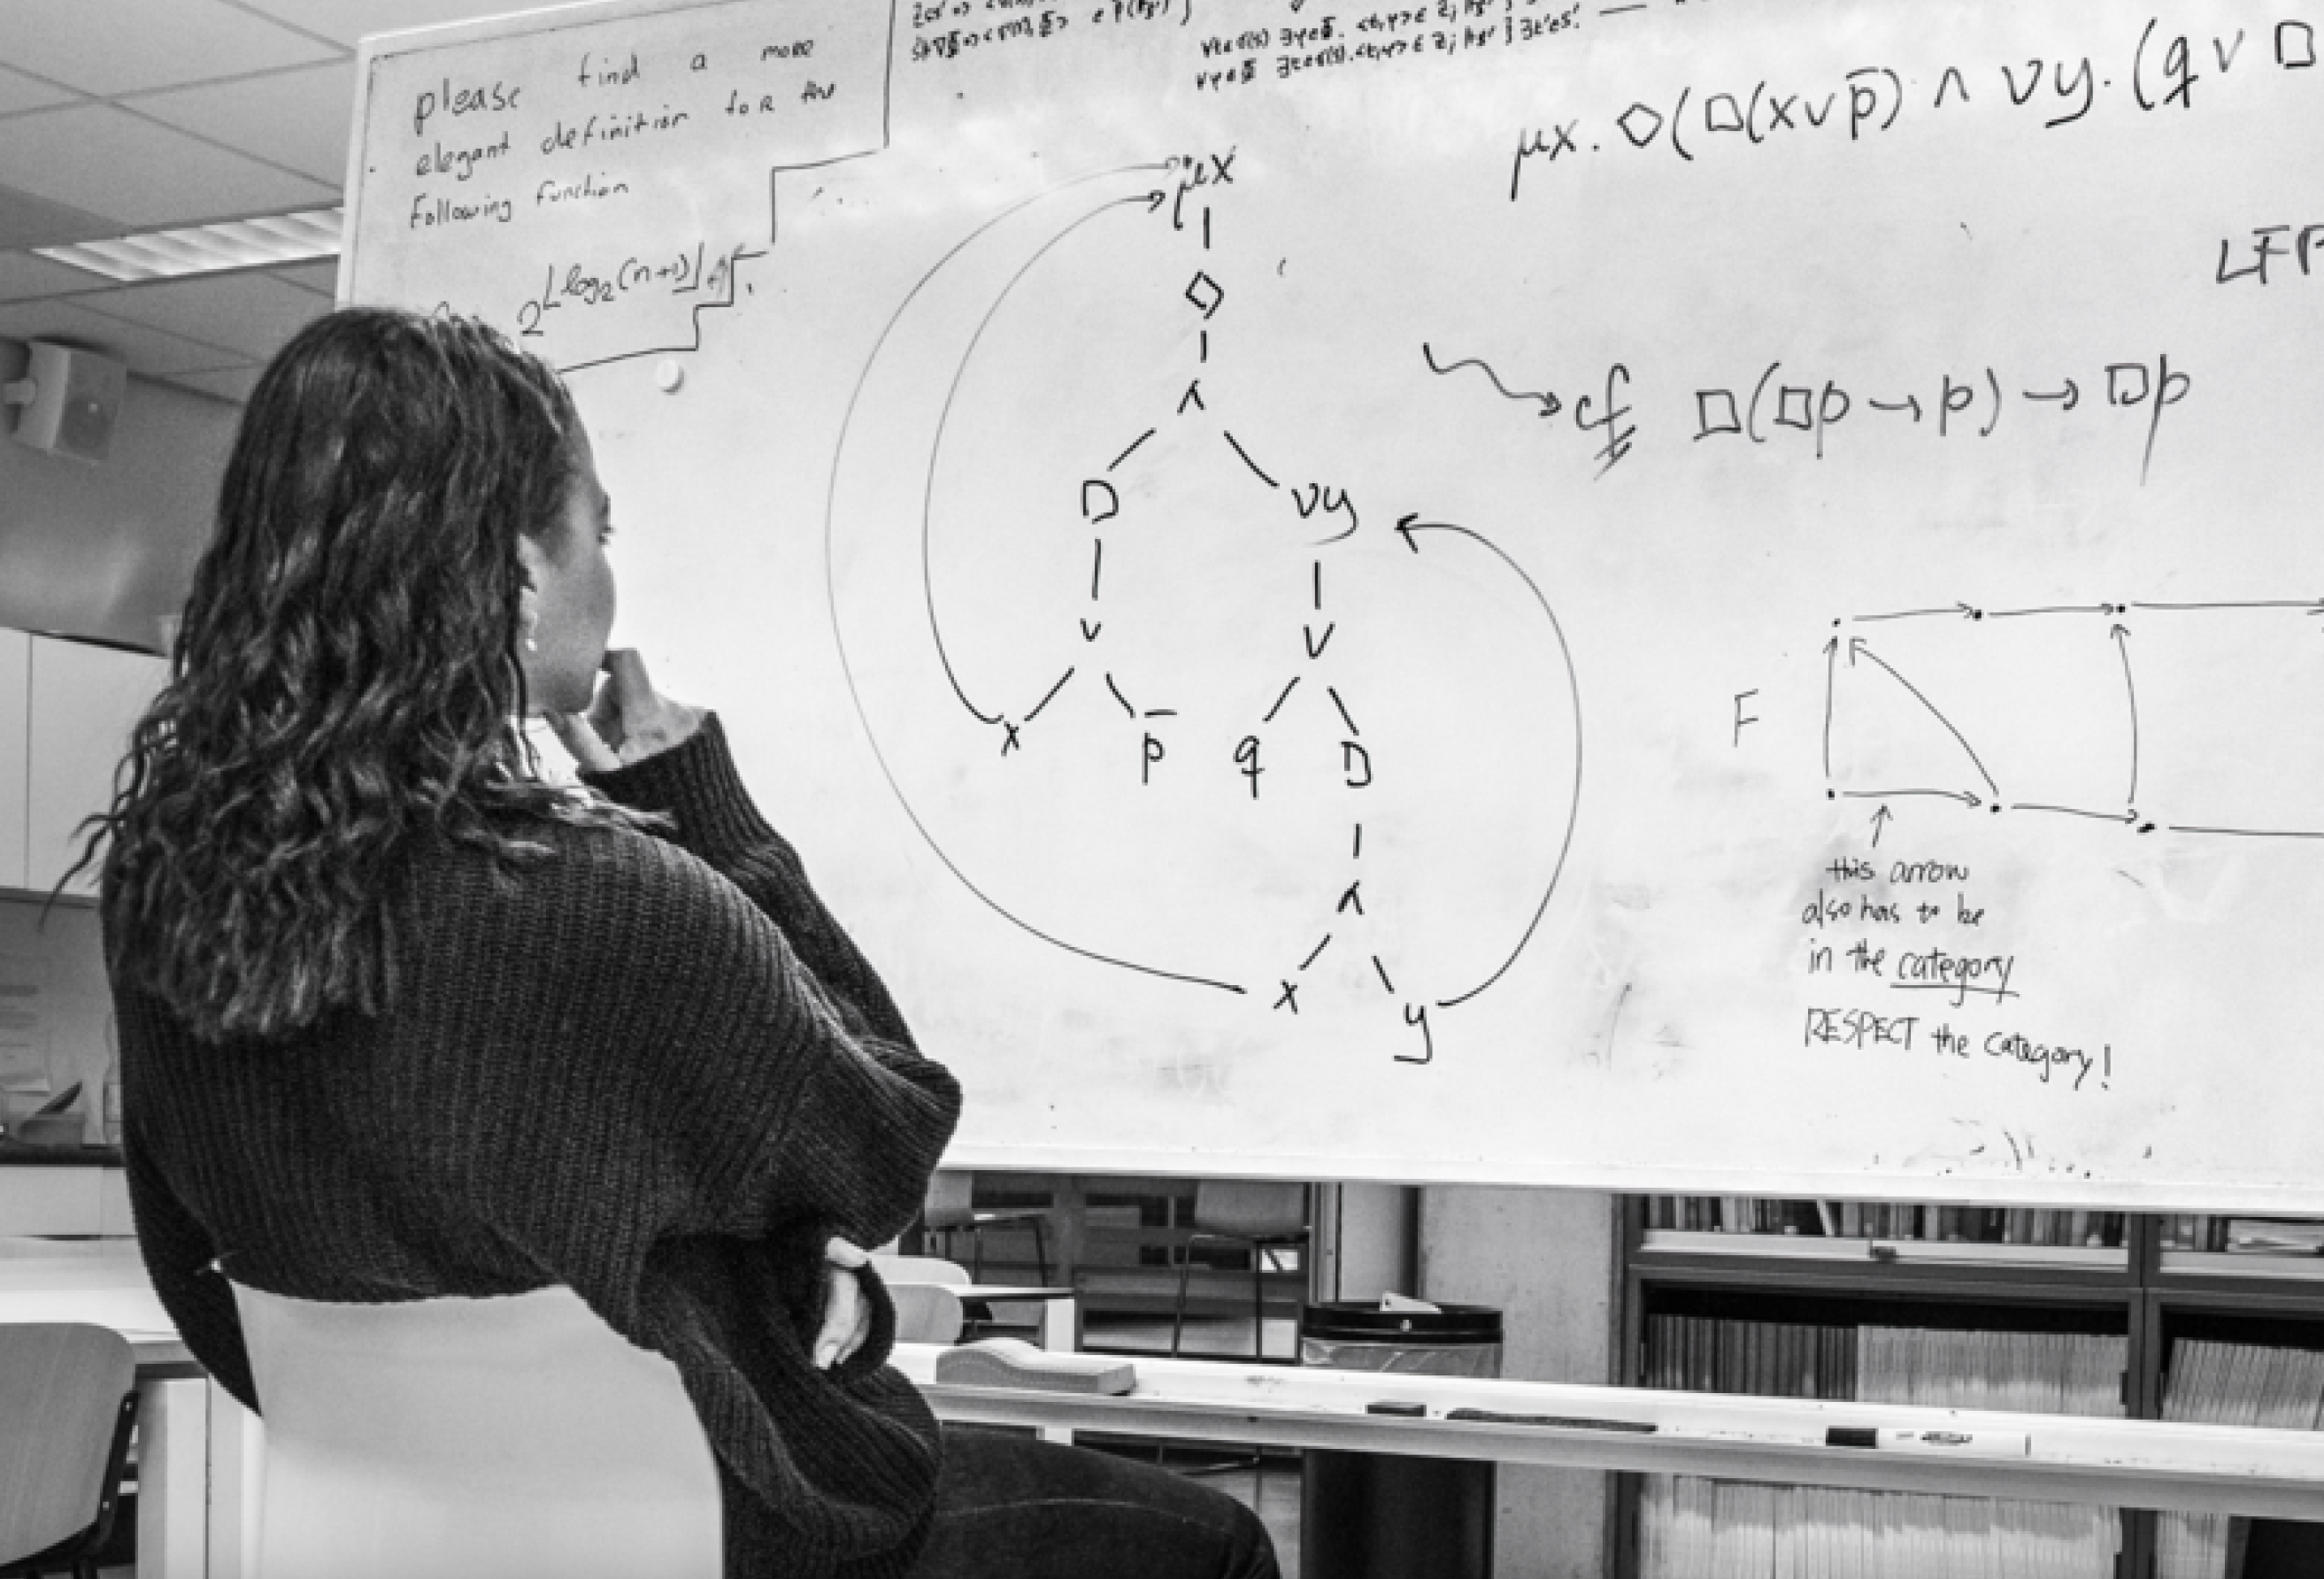 please find a more
elegant definition for the
following function
2^⌊log₂(n+1)⌋
μx. ◇(□(x∨p̄) ∧ νy. (q ∨ □
LFP
cf □(□p → p) → □p
μx
◇
∧
□ νy
∨ ∨
x p̄ q □
∧
x y
F
this arrow
also has to be
in the category
RESPECT the category!